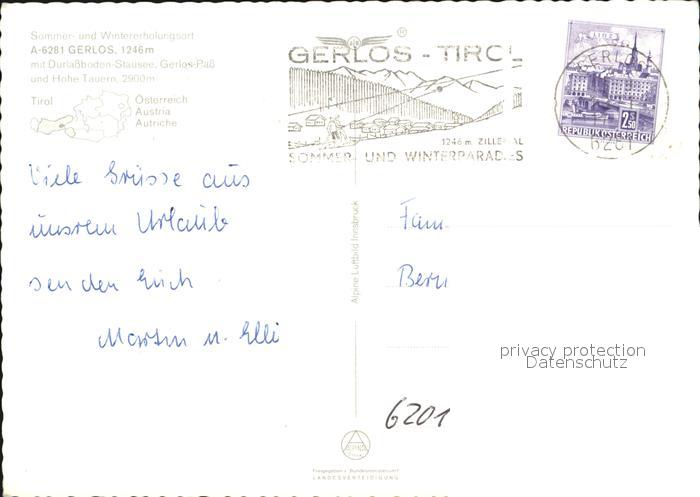 Sommer- und Wintererholungsort
A-6281 GERLOS, 1246m
mit Durlaßboden-Stausee, Gerlos-Paß
und Hohe Tauern, 2900m
Tirol
Österreich
Austria
Autriche
GERLOS - TIROL
1246 m ZILLERTAL
SOMMER- UND WINTERPARADIES
LINZ
2.50
REPUBLIK ÖSTERREICH
GERLOS
6281
Viele Grüsse aus
unsrem Urlaub
senden Euch
Martin u. Elli
Alpine Luftbild Innsbruck
Fam.
Bern
privacy protection
Datenschutz
6201
Freigegeben v. Bundesministerium f.
LANDESVERTEIDIGUNG